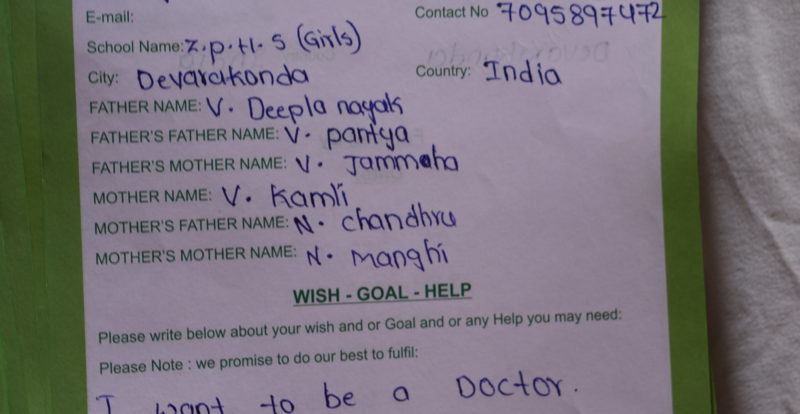 E-mail: Contact No 7095897472
School Name: Z.p.H.S (Girls)
City: Devarakonda Country: India
FATHER NAME: V. Deepla nayak
FATHER'S FATHER NAME: V. pantya
FATHER'S MOTHER NAME: V. Jammaha
MOTHER NAME: V. Kamli
MOTHER'S FATHER NAME: N. chandhru
MOTHER'S MOTHER NAME: N. manghi
WISH - GOAL - HELP
Please write below about your wish and or Goal and or any Help you may need:
Please Note : we promise to do our best to fulfil:
I want to be a Doctor.